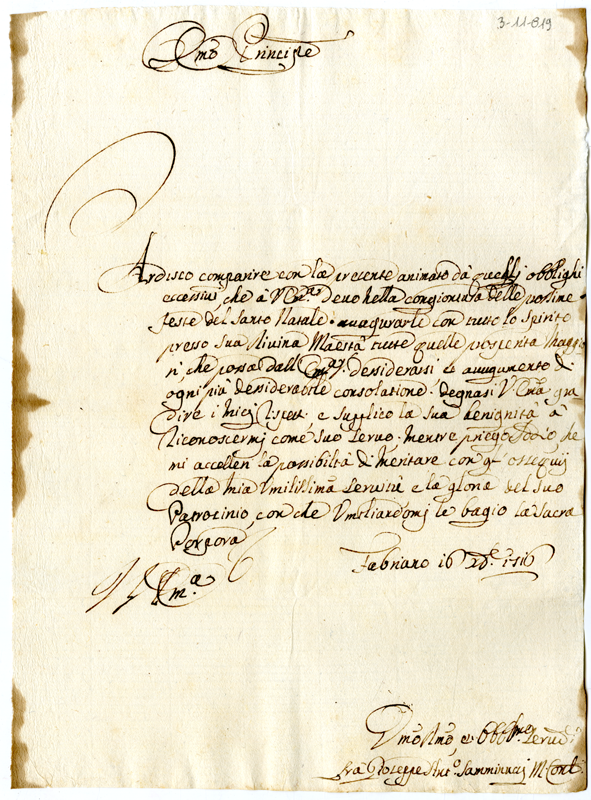 3-11-819
Emo Principe
Ardisco comparire con la presente animato dà quegl'j oblighi
eccessivi, che à V Emª devo nella congiontura delle prossime
feste del Santo Natale. auugurarle con tutto lo Spirito
presso Sua Divina Maestà tutte quelle prosperità maggio
ri, che possa dall' Emª V. dessiderarsi ed auugumento di
ogni più dessiderabile consolatione. degnasi V Emª gra
dire i miej e supplico la sua benignità à
riconoscermj comé suo servo. Mentre priego Iddio, che
mi accelleri la possibiltà di meritare con gl' ossequij
della mia Umilissima servitù e la gloria del suo
Patrocinio, con che Umiliandomj le bagio la Sacra
Porpora
Di V Emª
Fabriano 16 Xbre 1716
Umo Dmo, e Obbmo servo
frà Gioseppe Anto. Samminiaj M Cont.